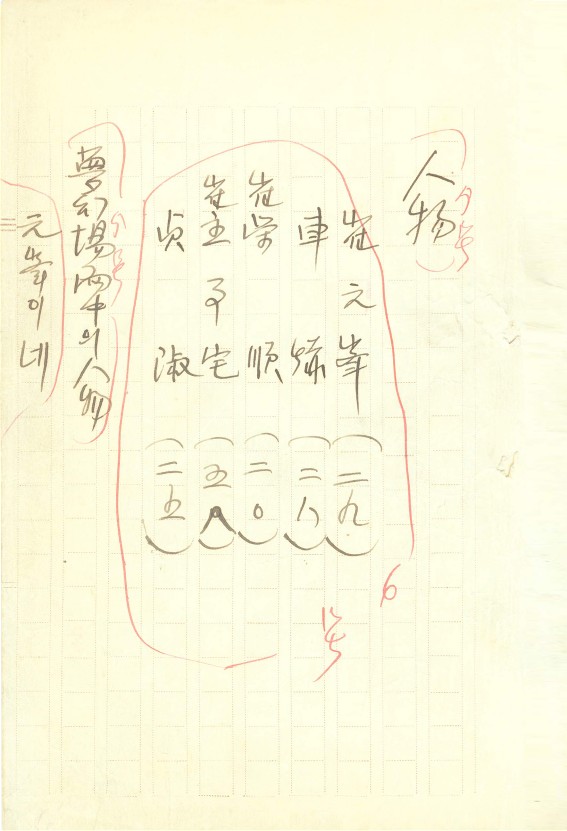 人物
崔元峯 (二九)
車 (二八)
崔榮順 (二〇)
崔主事宅 (五八)
貞淑 (二五)
夢幻場面中의 人物
元峯이네
6